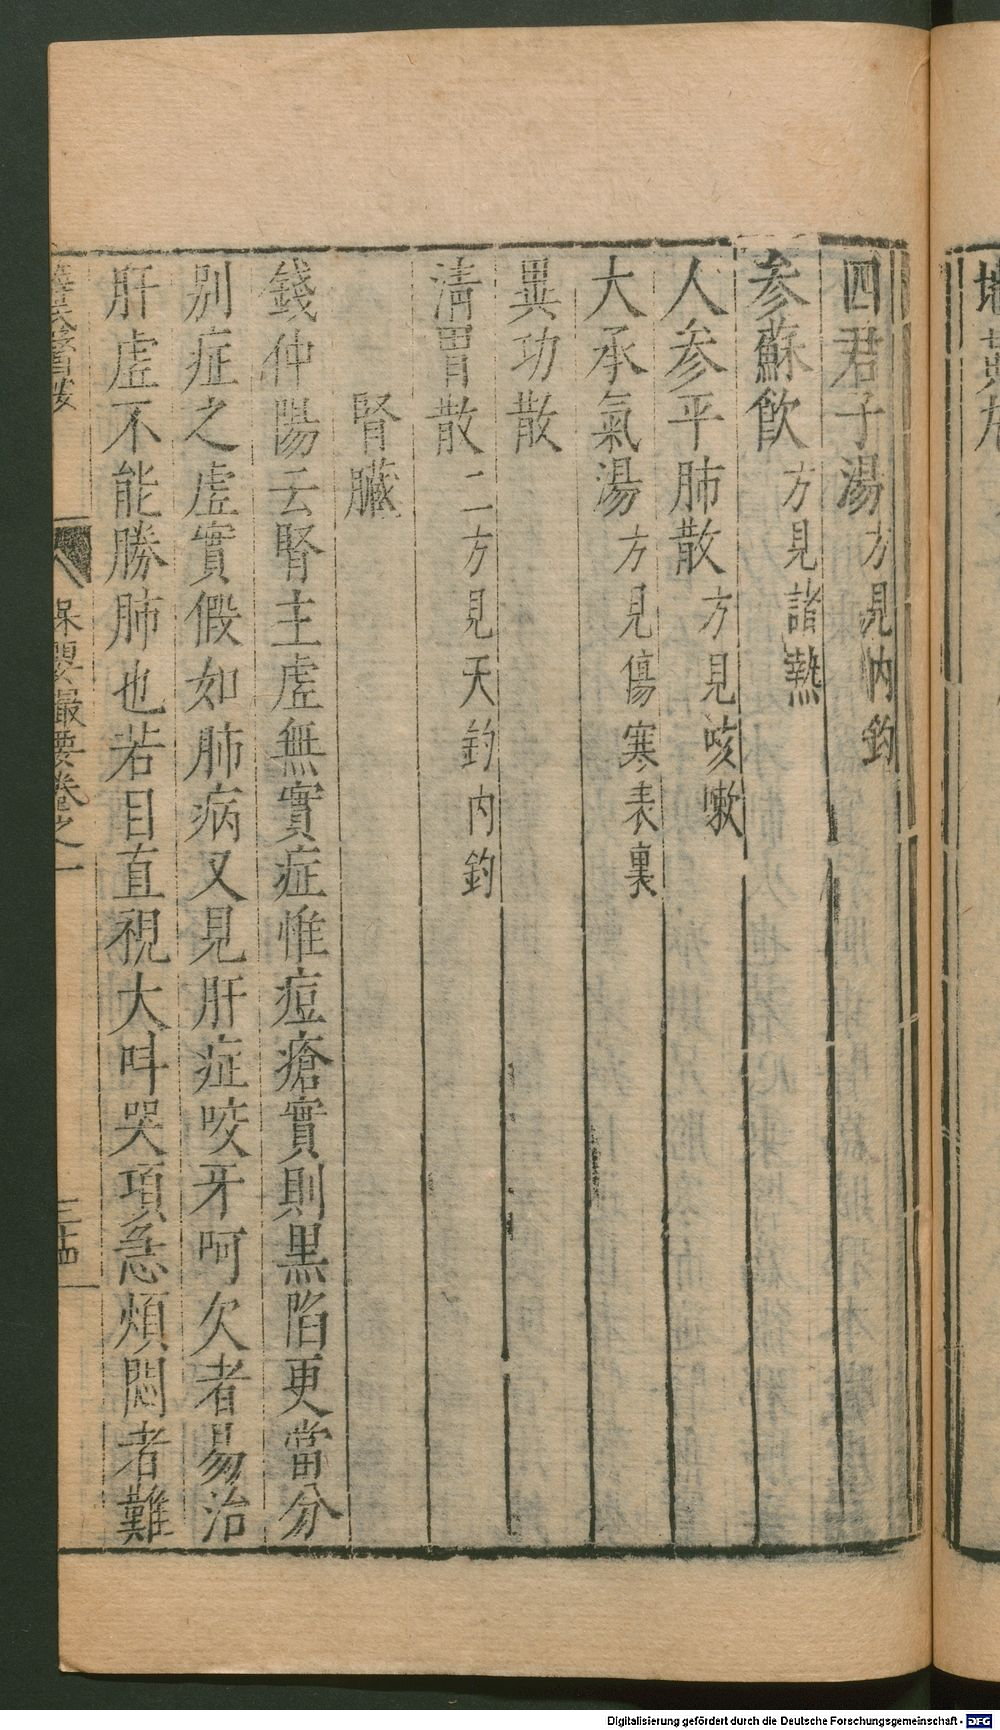 四君子湯方見內釣
参蘇飲方見諸熱
人参平肺散方見咳嗽
大承氣湯方見傷寒表裏
異功散
清胃散二方見天釣內釣
腎臟
錢仲陽云腎主虛無實症惟痘瘡實則黑陷更當分
別症之虛實假如肺病又見肝症咬牙呵欠者易治
肝虛不能勝肺也若目直視大呌哭項急煩悶者難
保嬰撮要卷之一
三十四
Digitalisierung gefördert durch die Deutsche Forschungsgemeinschaft - DFG